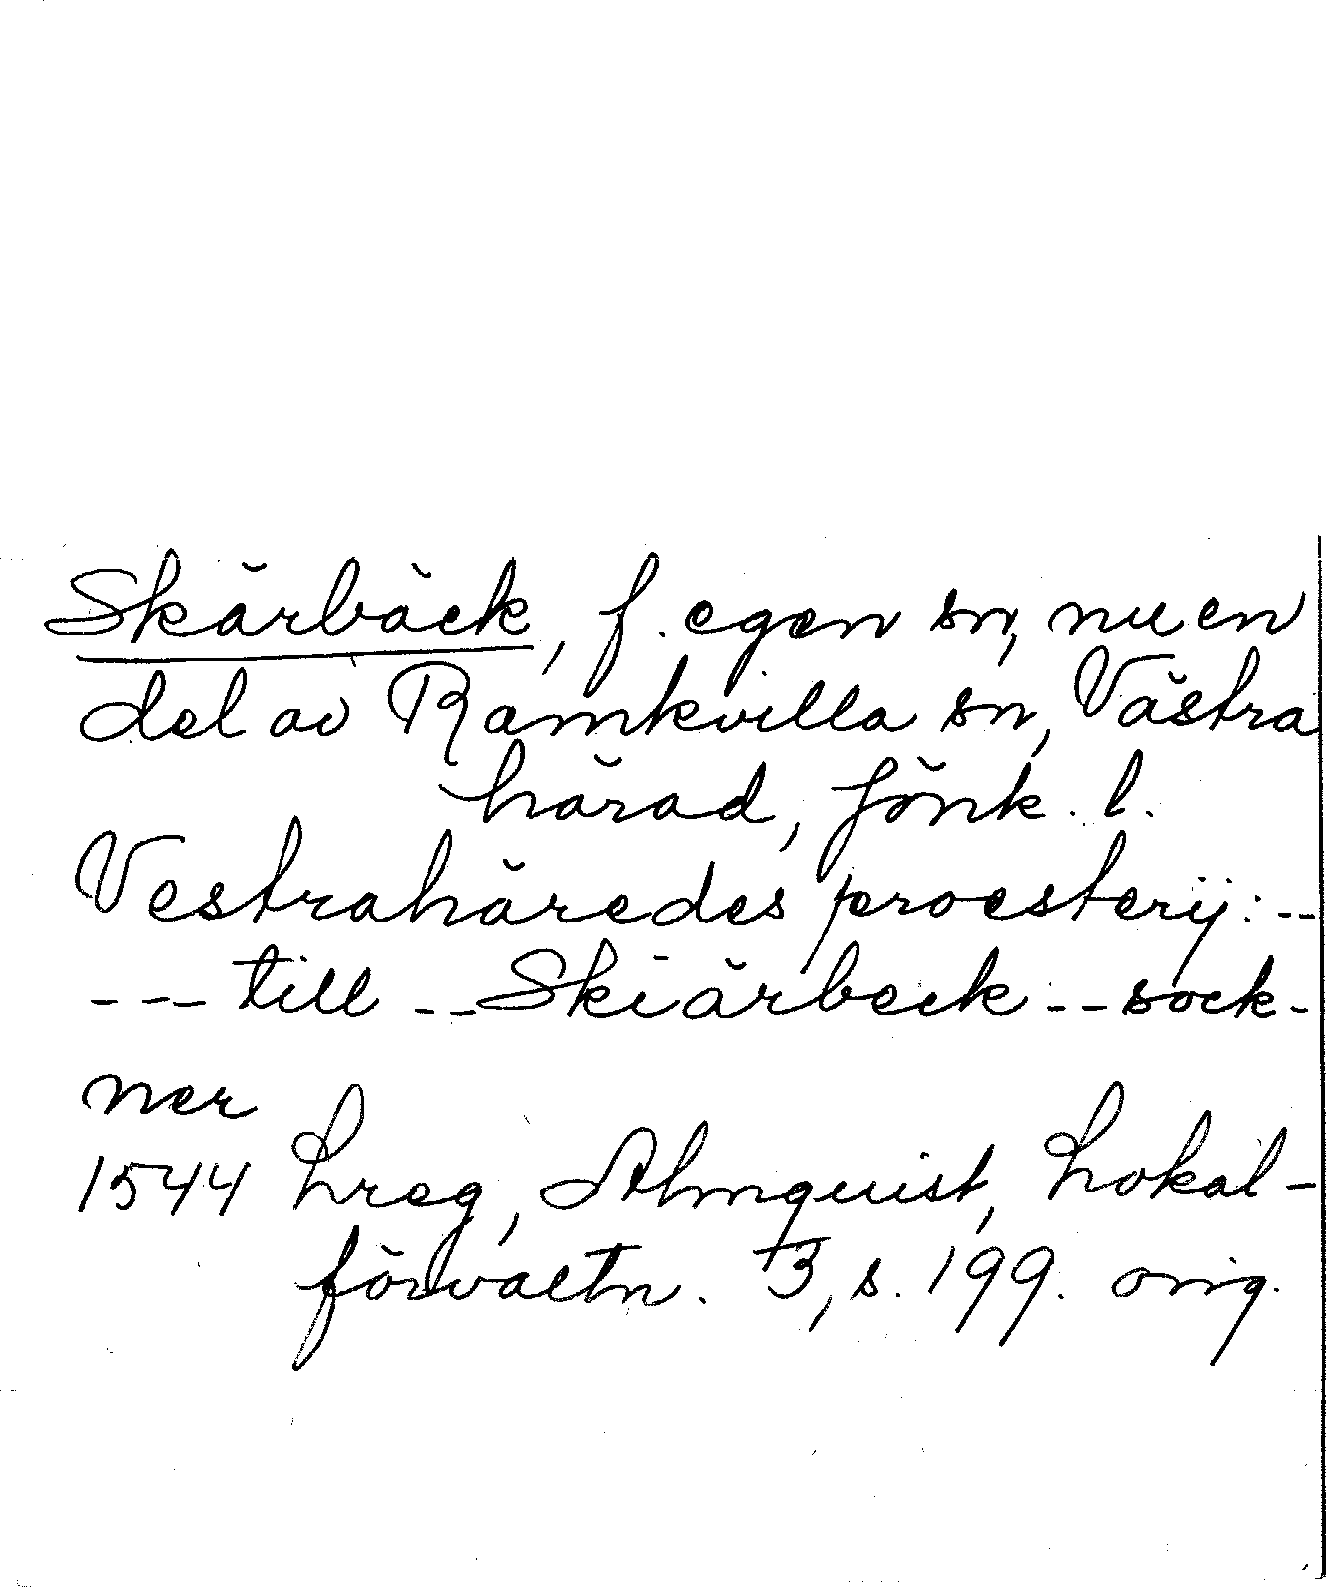 Skärbäck, f. egen sn, nu en
del av Ramkvilla sn, Västra
härad, Jönk. l.
Vestrahäredes proesterij: --
--- till -- Skiärbeck -- sock-
ner
1544 Lreg, Almquist, Lokal-
förvaltn. 3, s. 199. orig.